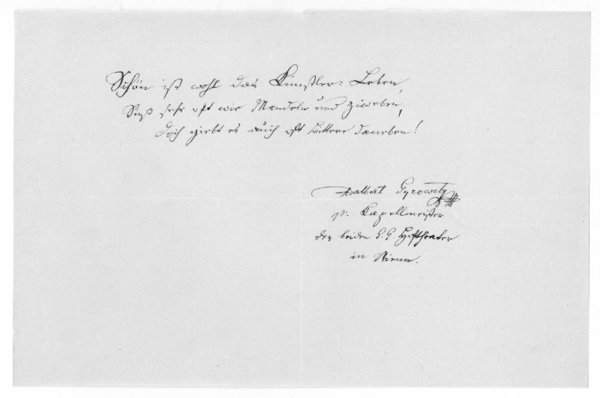 Schön ist wohl das Künstler-Leben,
Süß sehr oft wie Mandeln und Ziweben,
Doch giebt es auch oft bittere daneben!
Adalbert Gyrowetz
p. Kapellmeister
der beiden k k Hoftheater
in Wien.